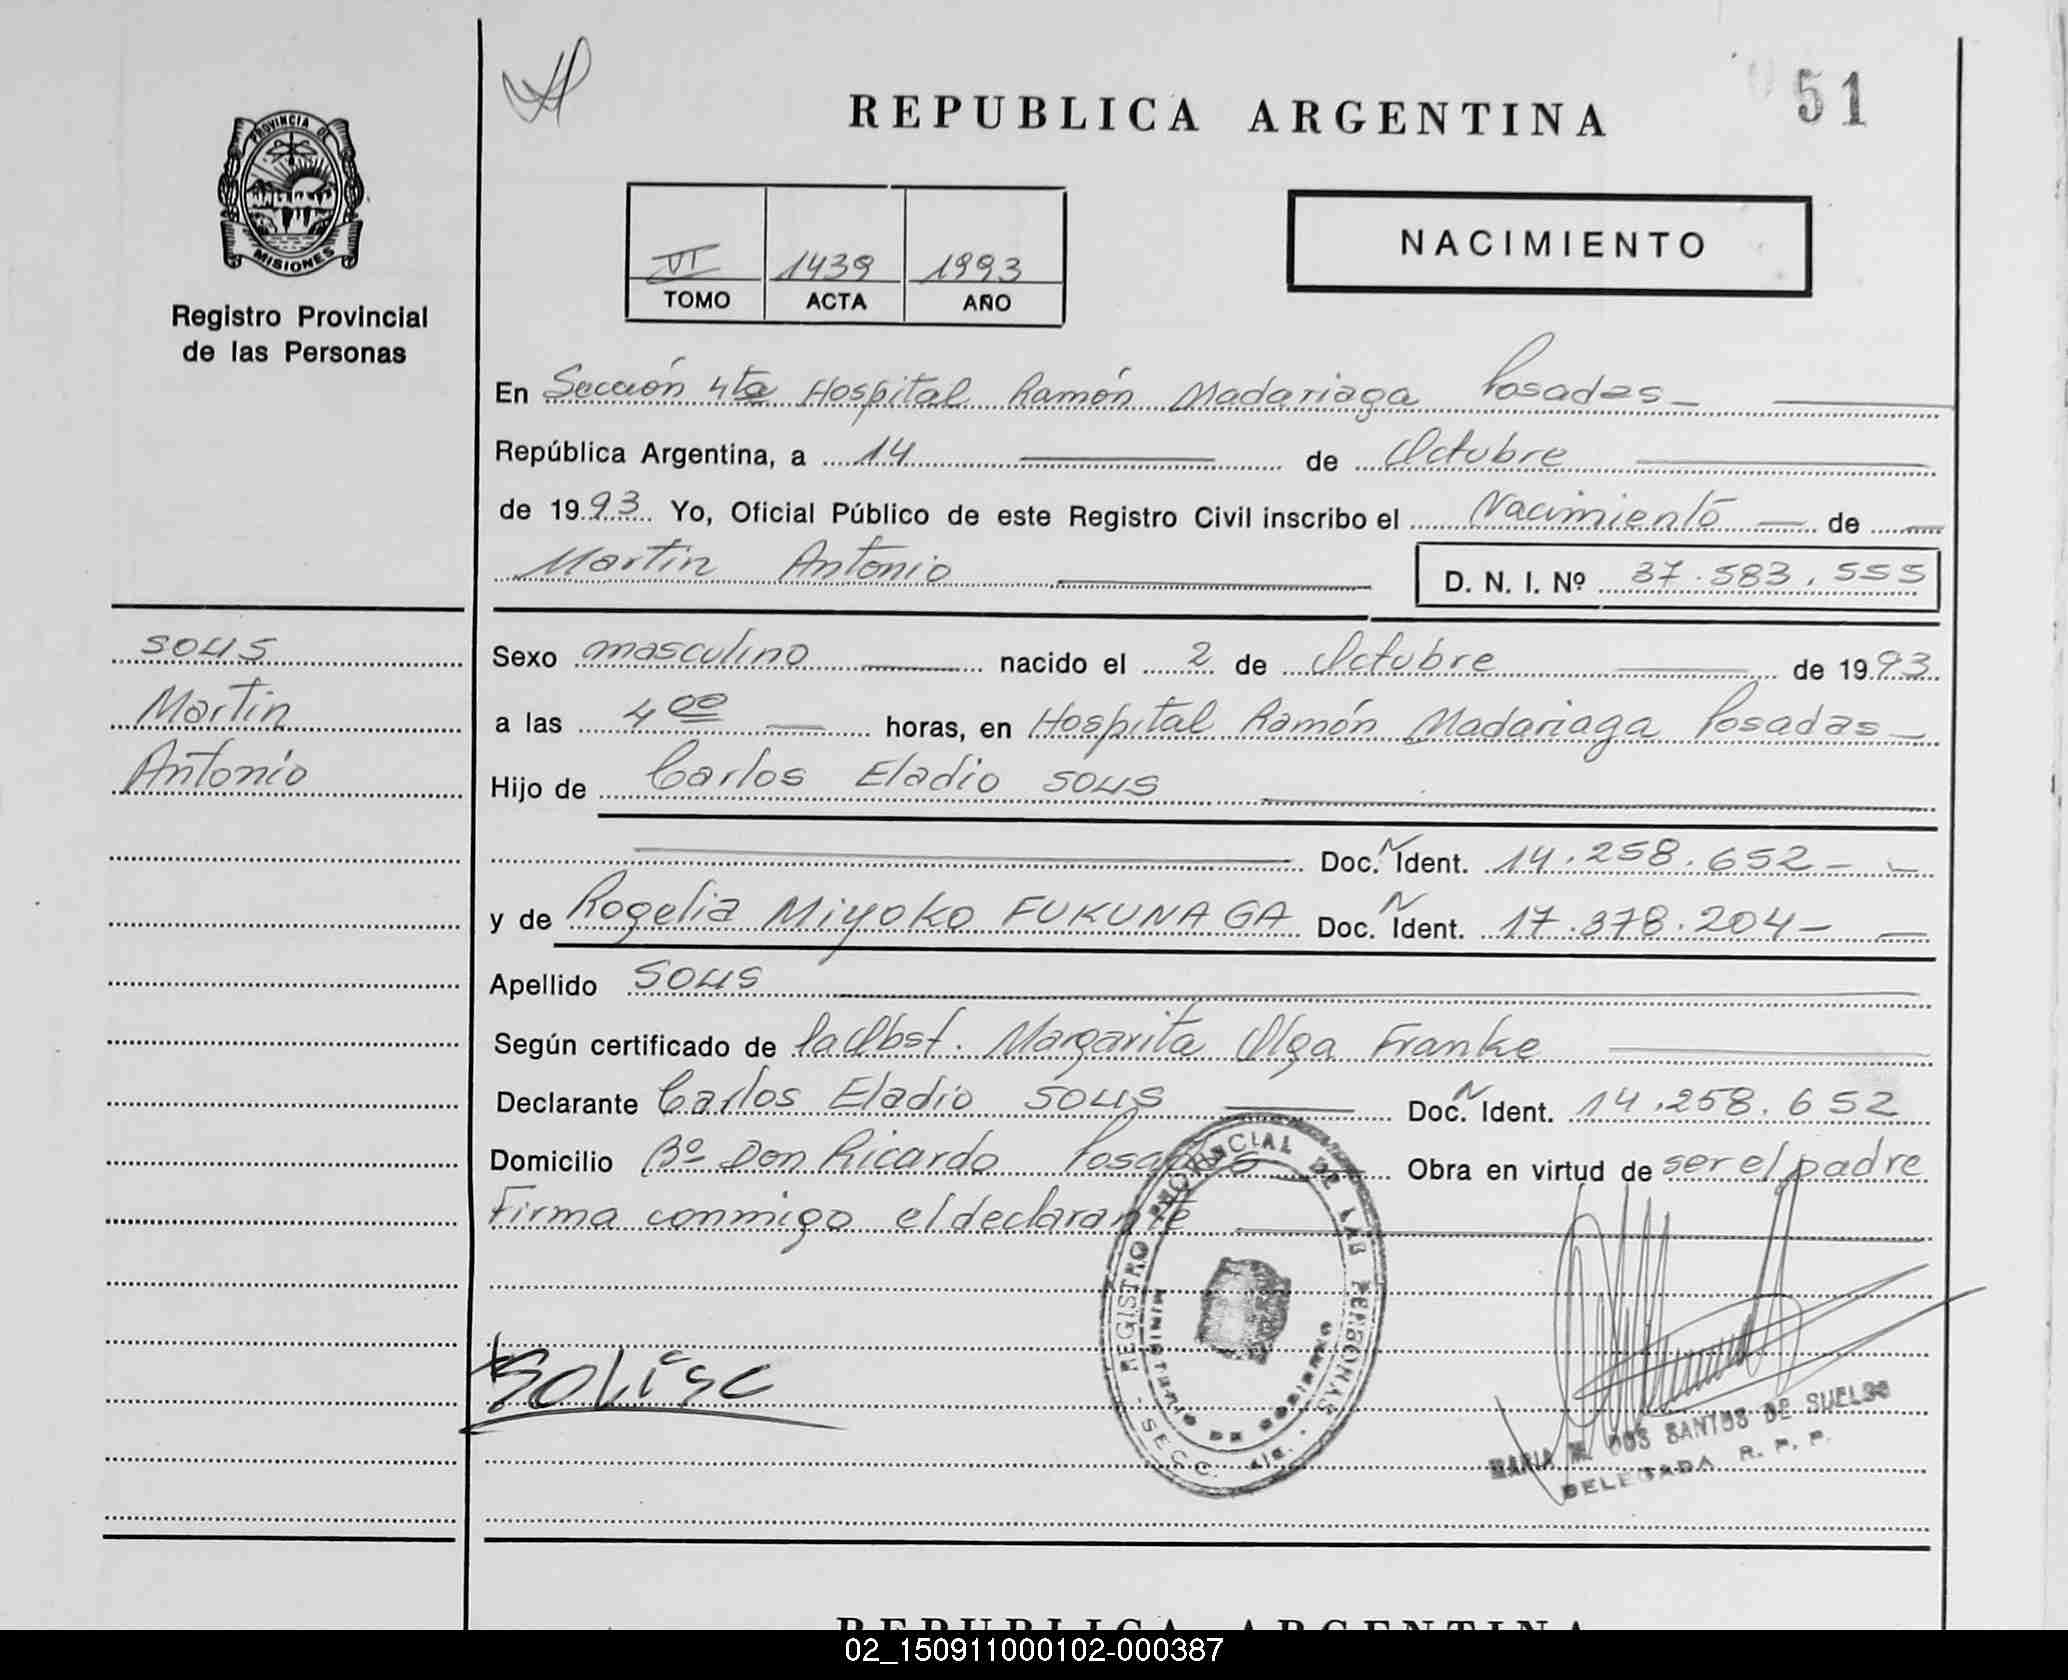 51
REPUBLICA ARGENTINA
PROVINCIA DE
MISIONES
Registro Provincial
de las Personas
VI 1439 1993
TOMO ACTA AÑO
NACIMIENTO
En Sección 4ta Hospital Ramón Madariaga Posadas
República Argentina, a 14 de Octubre
de 1993 Yo, Oficial Público de este Registro Civil inscribo el Nacimiento de
Martin Antonio D. N. I. Nº 37.583.555
SOLIS
Martin
Antonio
Sexo masculino nacido el 2 de Octubre de 1993
a las 4 00 horas, en Hospital Ramón Madariaga Posadas
Hijo de Carlos Eladio SOLIS
Doc. N Ident. 14.258.652
y de Rogelia Miyoko FUKUNAGA Doc. N Ident. 17.378.204
Apellido SOLIS
Según certificado de la Obst. Margarita Olga Franke
Declarante Carlos Eladio SOLIS Doc. N Ident. 14.258.652
Domicilio Bº Don Ricardo Posadas Obra en virtud de ser el padre
Firma conmigo el declarante
REGISTRO PROVINCIAL DE LAS PERSONAS
MINISTERIO DE GOBIERNO
- SECC. 4ta. -
SOLISC
MARIA M. DOS SANTOS DE SUELDO
DELEGADA R. P. P.
REPUBLICA ARGENTINA
02_150911000102-000387